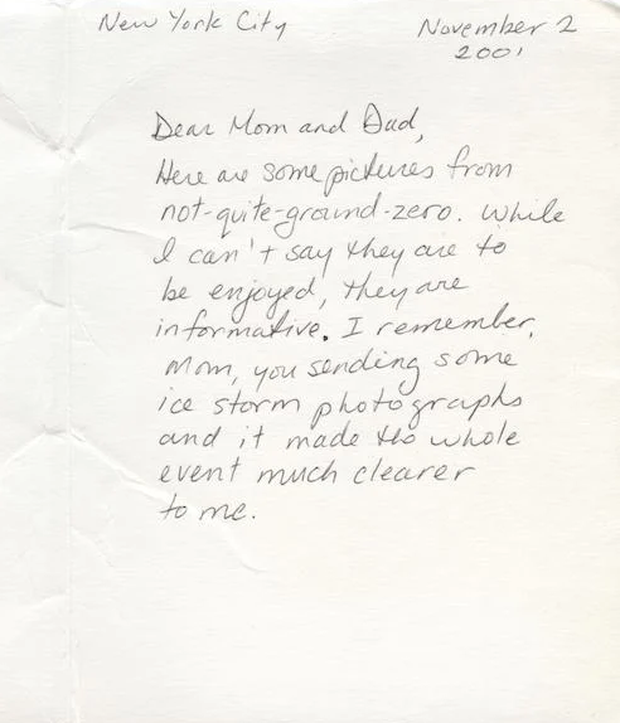 New York City November 2
2001
Dear Mom and Dad,
Here are some pictures from
not-quite-ground-zero. While
I can't say they are to
be enjoyed, they are
informative. I remember,
Mom, you sending some
ice storm photographs
and it made the whole
event much clearer
to me.